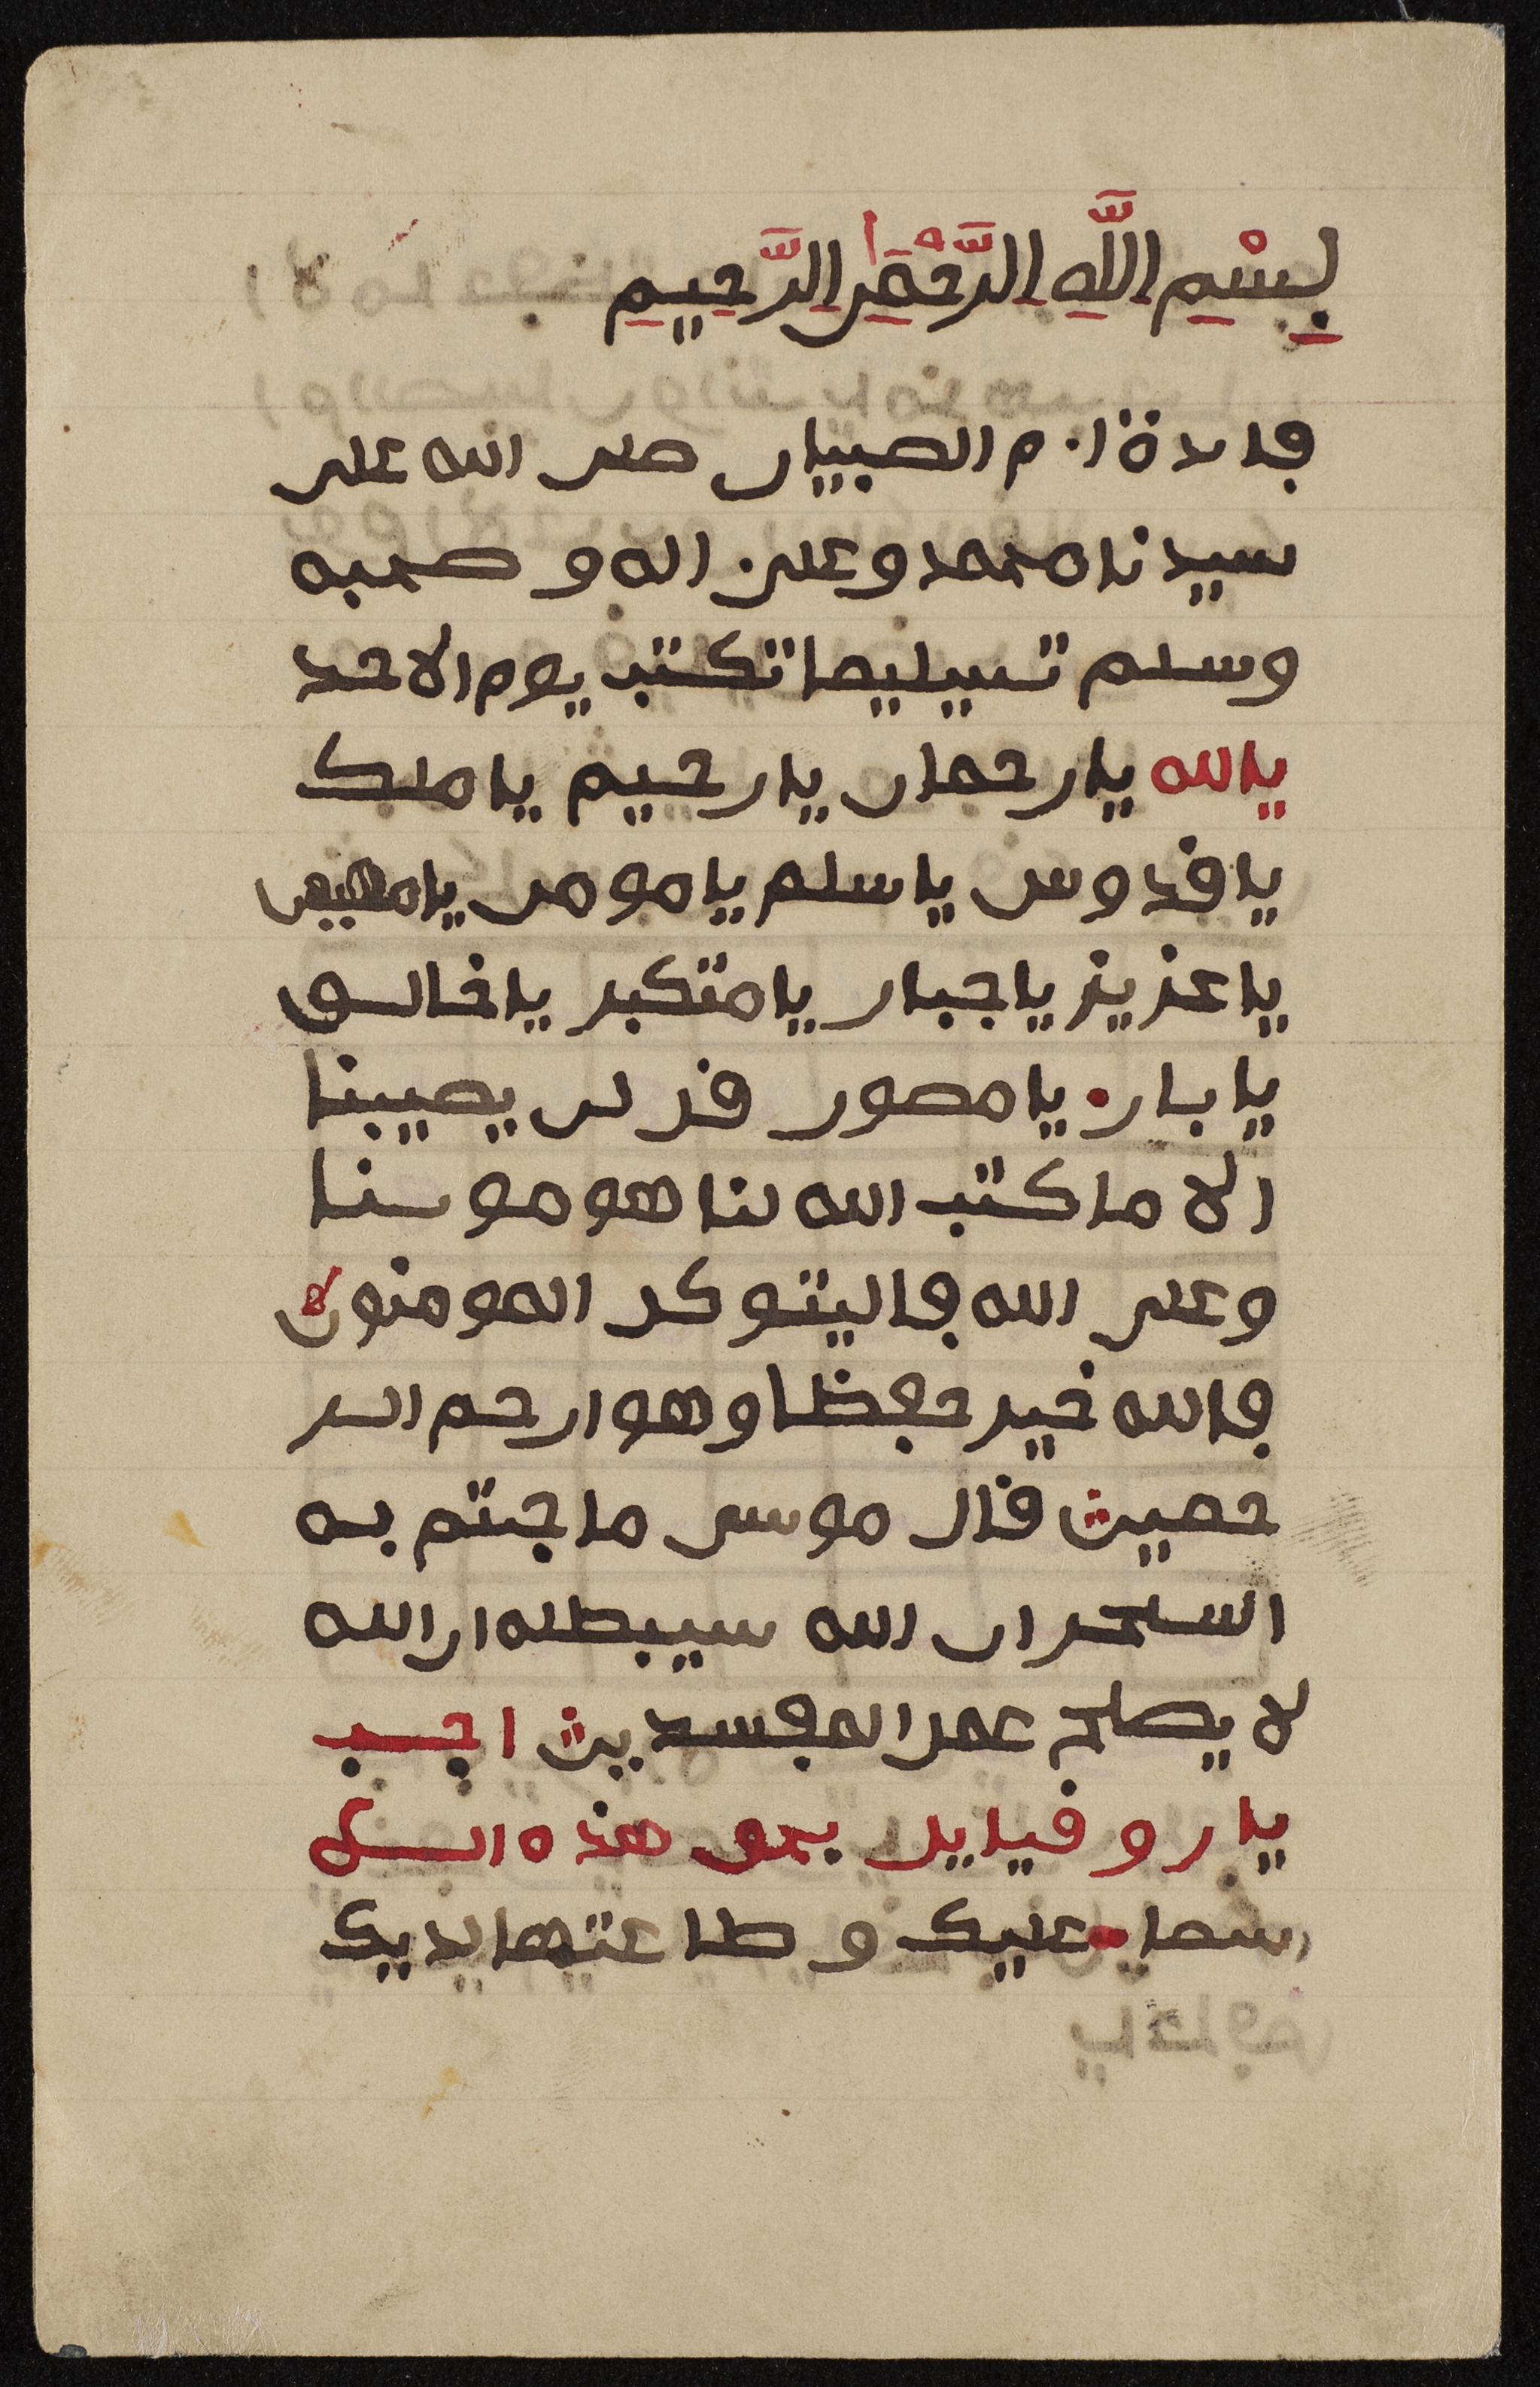 بِسْمِ اللَّهِ الرَّحْمَٰنِ الرَّحِيمِ
فايدة ام الصبيان صلى الله على
سيدنا محمد وعلى اله وصحبه
وسلم تسييليما تكتب يوم الاحد
يالله يارحمان يارحيم ياملك
ياقدوس ياسلم يامومن يامهيمن
ياعزيز ياجبار يامتكبر ياخالق
يابار يامصور قل لن يصيبنا
الا ما كتب الله لنا هو مولينا
وعلى الله فاليتوكل المومنون
فالله خير حفظا وهو ارحم الر
حمين قال موسى ما جتم به
السحر ان الله سيبطله ان الله
لا يصلح عمل المفسدين اجب
يا روقيايل بحق هذه الس
اسما عليك وطاعتها لديك